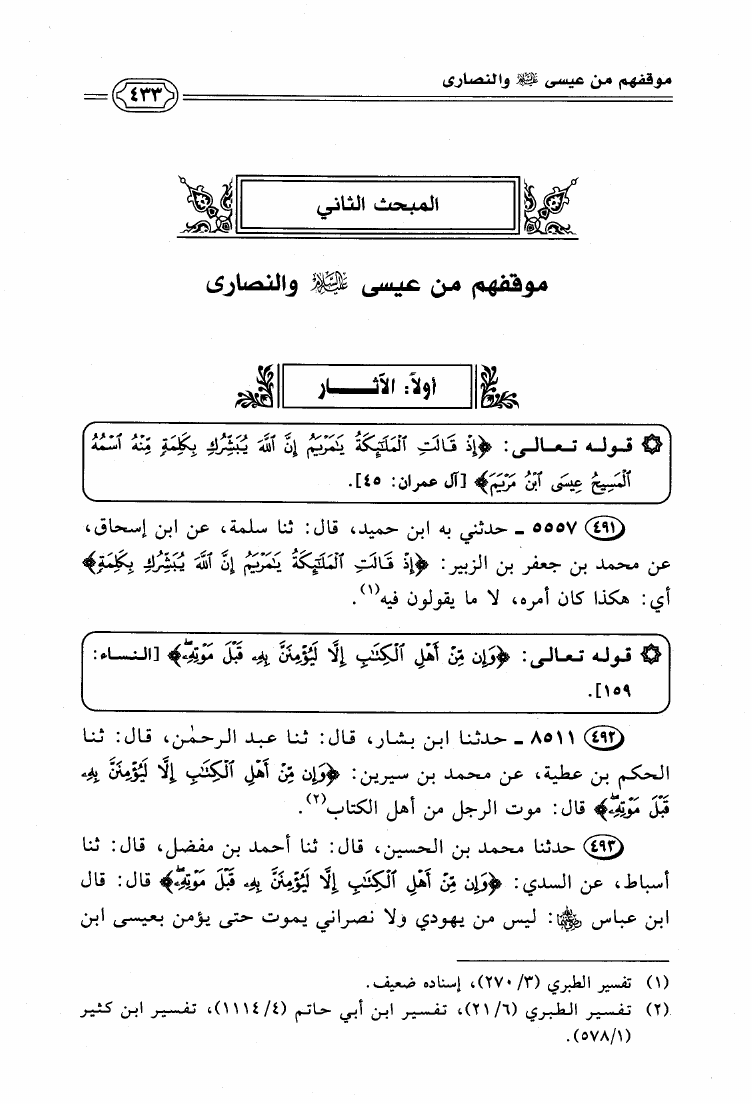 موقفهم من عيسى عليه السلام والنصارى
٤٣٣
المبحث الثاني
موقفهم من عيسى عليه السلام والنصارى
أولاً: الآثـــــار
قـولـه تـعـالـى: ﴿إِذْ قَالَتِ ٱلْمَلَٰٓئِكَةُ يَٰمَرْيَمُ إِنَّ ٱللَّهَ يُبَشِّرُكِ بِكَلِمَةٍ مِّنْهُ ٱسْمُهُ
ٱلْمَسِيحُ عِيسَى ٱبْنُ مَرْيَمَ﴾ [آل عمران: ٤٥].
(٤٩١) ٥٥٥٧ ـ حدثني به ابن حميد، قال: ثنا سلمة، عن ابن إسحاق،
عن محمد بن جعفر بن الزبير: ﴿إِذْ قَالَتِ ٱلْمَلَٰٓئِكَةُ يَٰمَرْيَمُ إِنَّ ٱللَّهَ يُبَشِّرُكِ بِكَلِمَةٍ﴾
أي: هكذا كان أمره، لا ما يقولون فيه(١).
قـولـه تـعـالى: ﴿وَإِن مِّنْ أَهْلِ ٱلْكِتَٰبِ إِلَّا لَيُؤْمِنَنَّ بِهِۦ قَبْلَ مَوْتِهِۦۖ﴾ [الـنـساء:
١٥٩].
(٤٩٢) ٨٥١١ ـ حدثنا ابن بشار، قال: ثنا عبد الرحمٰن، قال: ثنا
الحكم بن عطية، عن محمد بن سيرين: ﴿وَإِن مِّنْ أَهْلِ ٱلْكِتَٰبِ إِلَّا لَيُؤْمِنَنَّ بِهِۦ
قَبْلَ مَوْتِهِۦۖ﴾ قال: موت الرجل من أهل الكتاب(٢).
(٤٩٣) حدثنا محمد بن الحسين، قال: ثنا أحمد بن مفضل، قال: ثنا
أسباط، عن السدي: ﴿وَإِن مِّنْ أَهْلِ ٱلْكِتَٰبِ إِلَّا لَيُؤْمِنَنَّ بِهِۦ قَبْلَ مَوْتِهِۦۖ﴾ قال: قال
ابن عباس: ليس من يهودي ولا نصراني يموت حتى يؤمن بعيسى ابن
(١) تفسير الطبري (٢٧٠/٣)، إسناده ضعيف.
(٢) تفسير الطبري (٢١/٦)، تفسير ابن أبي حاتم (١١١٤/٤)، تفسير ابن كثير
(٥٧٨/١).